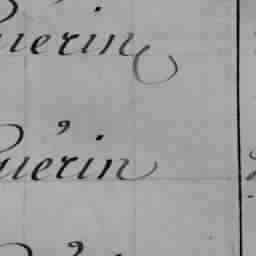 uérin
uérin